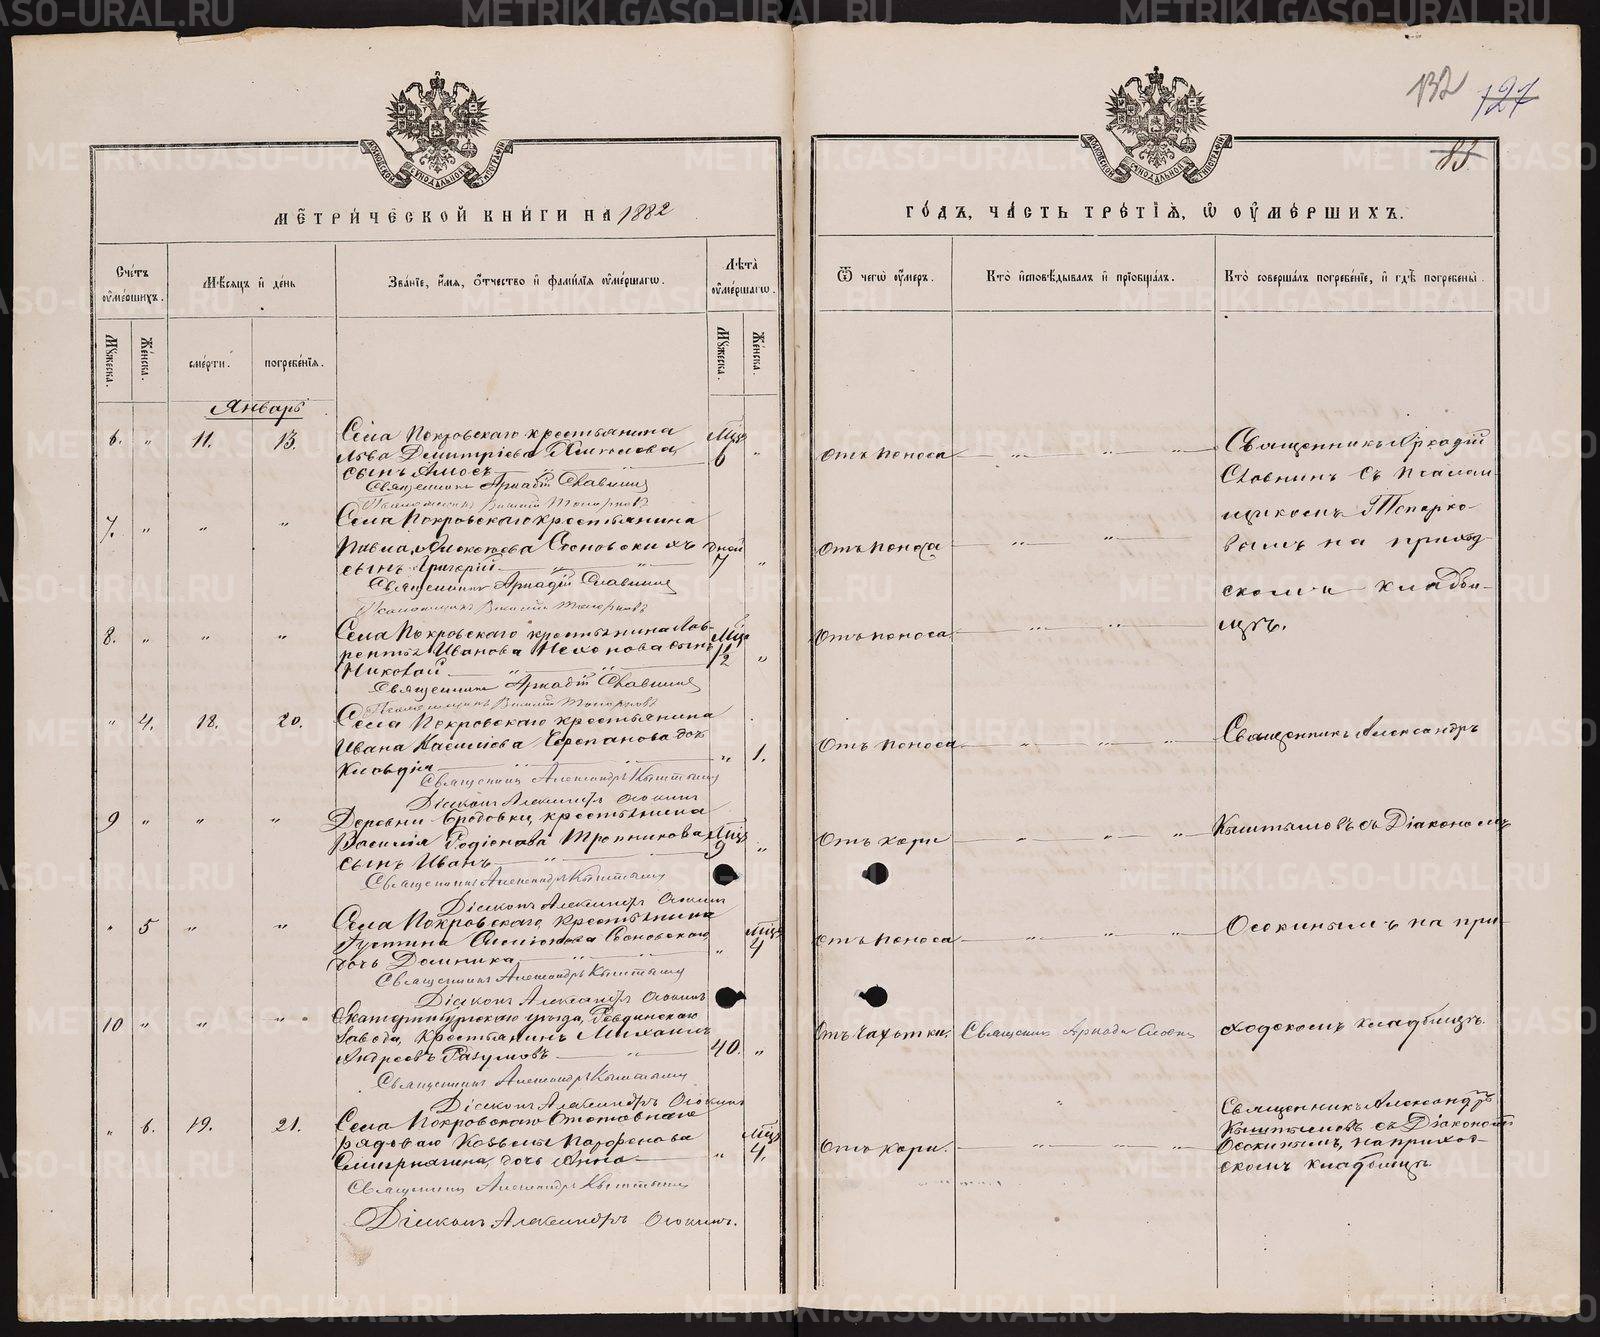 METRIKI.GASO-URAL.RU
132 127
83
МОСКОВСКОЙ СѴНОДАЛЬНОЙ ТИПОГРАФІИ
МЕТРИЧЕСКОЙ КНИГИ НА 1882
ГОДЪ, ЧАСТЬ ТРЕТІЯ, Ѡ ОУМЕРШИХЪ.
Счетъ оумершихъ.
Мѣсяцъ и день
Званіе, имя, отчество и фамилія оумершагѡ.
Лѣта оумершагѡ.
Ѿ чегѡ оумеръ.
Кто исповѣдывалъ и пріобщалъ.
Кто совершалъ погребеніе, и гдѣ погребены.
Мужеска.
Женска.
смерти.
погребенія.
Мужеска.
Женска.
Январь
6. " 11. 13.
Села Покровскаго крестьянина
Льва Димитріева
сынъ Амосъ
Мцъ 6 "
Отъ поноса " " "
Священникъ Аркадій Славнинъ
7. " " "
Села Покровскаго крестьянина
Павла Алексѣева Сосновскихъ
сынъ Григорій
дней 7 "
Отъ поноса " "
Священникъ Аркадій Славнинъ
Псаломщикъ Василій Топорковъ
8. " " "
Села Покровскаго крестьянина Лав-
рентія Иванова сынъ
Николай
Мцъ 1/2 "
Отъ поноса " "
Священникъ Аркадій Славнинъ
Псаломщикъ Василій Топорковъ
Священникъ Аркадій
Славнинъ съ Псалом-
щикомъ Топорко-
вымъ на приход-
скомъ кладби-
щѣ.
" 4. 18. 20.
Села Покровскаго крестьянина
Ивана Черепанова дочь
Клавдія
" 1.
Отъ поноса " " "
Священникъ Александръ Кыштымовъ
Діаконъ Александръ Осокинъ
9 " " "
Деревни Бродовки, крестьянина
Василія Родіонова Тропникова
сынъ Иванъ
Мцъ 9 "
Отъ кори " " "
Священникъ Александръ Кыштымовъ
Діаконъ Александръ Осокинъ
" 5 " "
Села Покровскаго, крестьянина
Густина Сосновскаго
дочь Домника
" Мцъ 4
Отъ поноса " " "
Священникъ Александръ Кыштымовъ
Діаконъ Александръ Осокинъ
10 " " "
Екатеринбургскаго уѣзда, Ревдинскаго
завода, крестьянинъ Михаилъ
Андреевъ Разумовъ
40. "
Отъ чахотки.
Священникъ Аркадій Славнинъ
Священникъ Александръ Кыштымовъ
Діаконъ Александръ Осокинъ
Священникъ Александръ
Кыштымовъ съ Діакономъ
Осокинымъ на при-
ходскомъ кладбищѣ.
" 6. 19. 21.
Села Покровскаго Отставнаго
рядоваго Козьмы Парфенова
дочь Анна
" Мцъ 4.
Отъ кори. " "
Священникъ Александръ
Кыштымовъ съ Діакономъ
Осокинымъ, на приход-
скомъ кладбищѣ
Священникъ Александръ Кыштымовъ
Діаконъ Александръ Осокинъ.